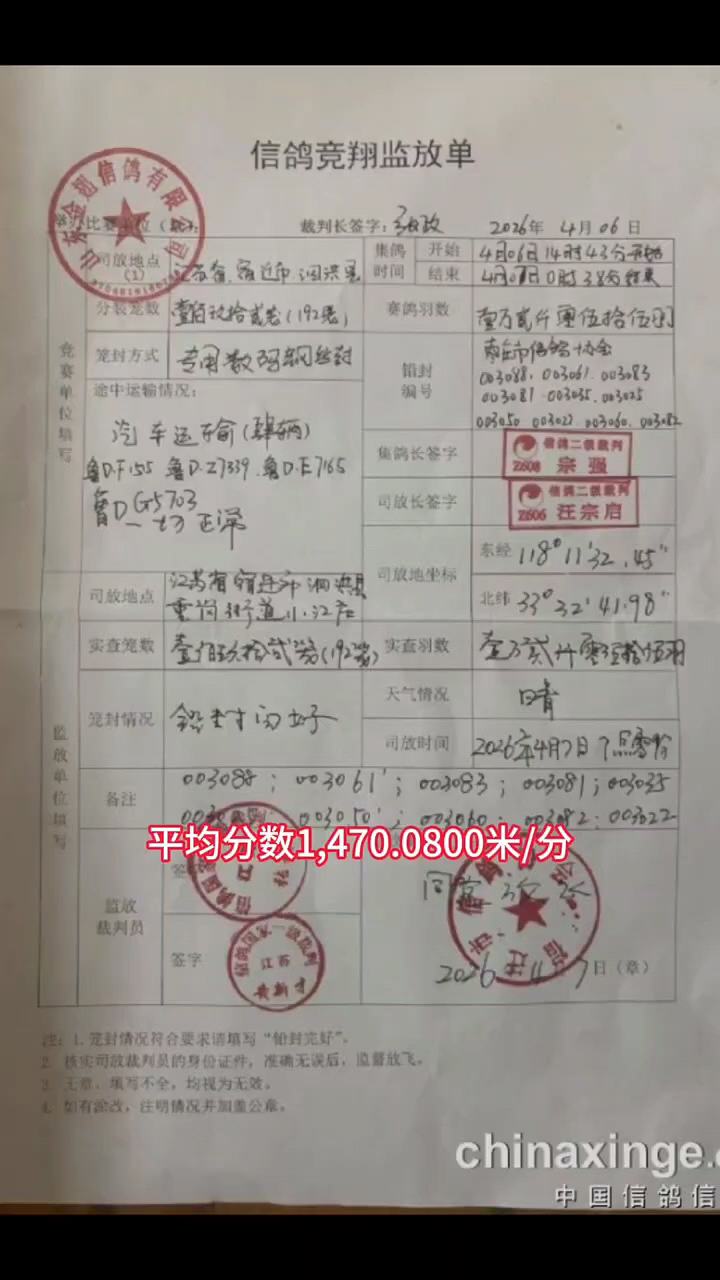 信鸽竞翔监放单
举办比赛单位(章):
裁判长签字:
2026年 4月06日
山东金翅信鸽有限公司
(1)
竞赛单位填写
司放地点
江苏省宿迁市泗洪县
集鸽时间
开始
4月06日14时43分开始
结束
4月07日0时38分结束
分装笼数
壹佰玖拾贰笼(192笼)
赛鸽羽数
壹万贰仟零伍拾伍羽
笼封方式
专用数码钢丝封
铅封编号
枣庄市信鸽协会
003088. 003061. 003083
003081 003035. 003025
003050 003022. 003060. 003082
途中运输情况:
汽车运输(肆辆)
鲁D.F155 鲁D.Z7339 鲁D.E7165
鲁D G5703
一切正常
集鸽长签字
信鸽二级裁判
Z608 宗强
司放长签字
信鸽二级裁判
Z606 汪宗启
司放地坐标
东经 118°11'32.45"
北纬 33°32'41.98"
监放单位填写
司放地点
江苏省宿迁市泗洪县
重岗街道小江庄
实查笼数
壹佰玖拾贰笼(192笼)
实查羽数
壹万贰仟零伍拾伍羽
笼封情况
铅封完好
天气情况
晴
司放时间
2026年4月7日7点零分
备注
003088; 003061; 003083; 003081; 003035
003050; 003060; 003082; 003022
平均分数1,470.0800米/分
监放裁判员
签字
签字
信鸽国家一级裁判
江西
2026 4 7日(章)
注: 1. 笼封情况符合要求请填写“铅封完好”。
2. 核实司放裁判员的身份证件,准确无误后,监督放飞。
3. 无章,填写不全,均视为无效。
4. 如有涂改,注明情况并加盖公章。
chinaxinge.c
中国信鸽信